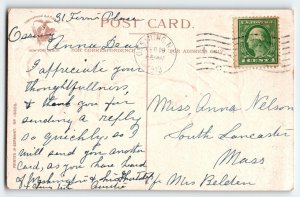 31 Ferris Place
POST CARD.
Ossining
NEW YORK
FOR CORRESPONDENCE
FOR ADDRESS ONLY
Annie Dear
I appreciate your
thoughtfullness,
& thank you for
sending a reply
so quickly so I
will send you another
Card, as you have heard
of Washington &
Miss. Anna Nelson
South Lancaster
Mass
c/o Mrs Belden
1 CENT 1